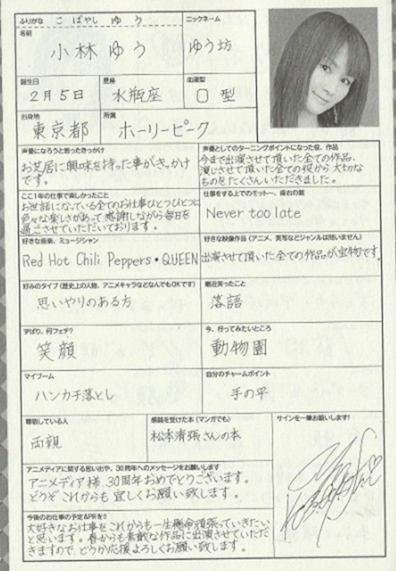 ふりがな こばやし ゆう
ニックネーム
名前
小林ゆう
ゆう坊
誕生日
星座
血液型
2月5日
水瓶座
O型
出身地
所属
東京都
ホーリーピーク
声優になろうと思ったきっかけ
お芝居に興味を持った事がきっかけ
です。
声優としてのターニングポイントになった役、作品
今まで出演させて頂いた全ての作品、
演じさせて頂いた全ての役から大切な
ものをたくさんいただきました。
ここ1年の仕事で楽しかったこと
お世話になっている全てのお仕事ひとつひとつに
色々な楽しさがあって感謝しながら毎日を
過ごさせていただいております。
仕事をする上でのモットー、座右の銘
Never too late
好きな音楽、ミュージシャン
Red Hot Chili Peppers・QUEEN
好きな映像作品(アニメ、実写などジャンルは問いません)
出演させて頂いた全ての作品が宝物です。
好みのタイプ(歴史上の人物、アニメキャラなどなんでもOKです)
思いやりのある方
最近笑ったこと
落語
ずばり、何フェチ?
笑顔
今、行ってみたいところ
動物園
マイブーム
ハンカチ落とし
自分のチャームポイント
手の平
尊敬している人
両親
感銘を受けた本(マンガでも)
松本清張さんの本
サインを一筆お願いします!
アニメディアに関する思い出や、30周年へのメッセージをお願いします
アニメディア様、30周年おめでとうございます。
どうぞこれからも宜しくお願い致します。
今後のお仕事の予定&PRを!!
大好きなお仕事をこれからも一生懸命頑張っていきたい
と思います。春からも素敵な作品に出演させていただ
きますので、どうか応援よろしくお願い致します。